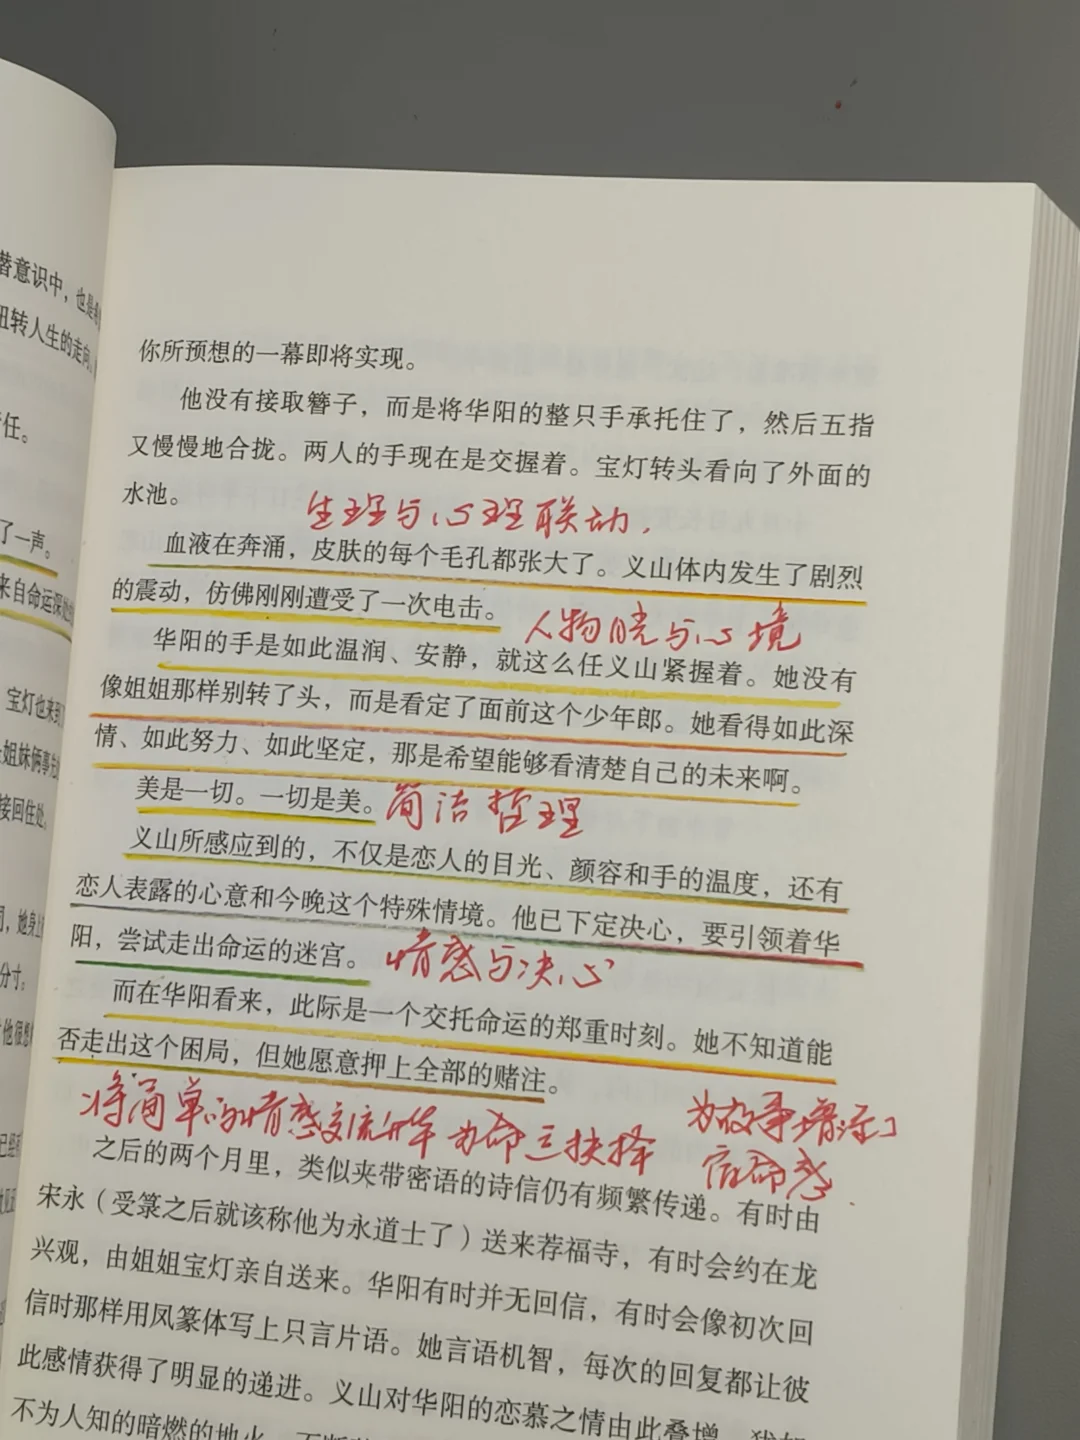 替意识中，也是
扭转人生的走向，
任。
了一声。
来自命运深处
宝灯也来到
姐妹俩事先
接回住处。
她身上
分寸。
他很想
你所预想的一幕即将实现。
他没有接取簪子，而是将华阳的整只手承托住了，然后五指
又慢慢地合拢。两人的手现在是交握着。宝灯转头看向了外面的
水池。
生理与心理联动，
血液在奔涌，皮肤的每个毛孔都张大了。义山体内发生了剧烈
的震动，仿佛刚刚遭受了一次电击。
人物 与心境
华阳的手是如此温润、安静，就这么任义山紧握着。她没有
像姐姐那样别转了头，而是看定了面前这个少年郎。她看得如此深
情、如此努力、如此坚定，那是希望能够看清楚自己的未来啊。
美是一切。一切是美。
简洁哲理
义山所感应到的，不仅是恋人的目光、颜容和手的温度，还有
恋人表露的心意和今晚这个特殊情境。他已下定决心，要引领着华
阳，尝试走出命运的迷宫。
情感与决心
而在华阳看来，此际是一个交托命运的郑重时刻。她不知道能
否走出这个困局，但她愿意押上全部的赌注。
将简单的情感交流升华为命运抉择
为故事增添了
宿命感
之后的两个月里，类似夹带密语的诗信仍有频繁传递。有时由
宋永（受箓之后就该称他为永道士了）送来荐福寺，有时会约在龙
兴观，由姐姐宝灯亲自送来。华阳有时并无回信，有时会像初次回
信时那样用凤篆体写上只言片语。她言语机智，每次的回复都让彼
此感情获得了明显的递进。义山对华阳的恋慕之情由此叠增，犹如
不为人知的暗燃的地火，不断